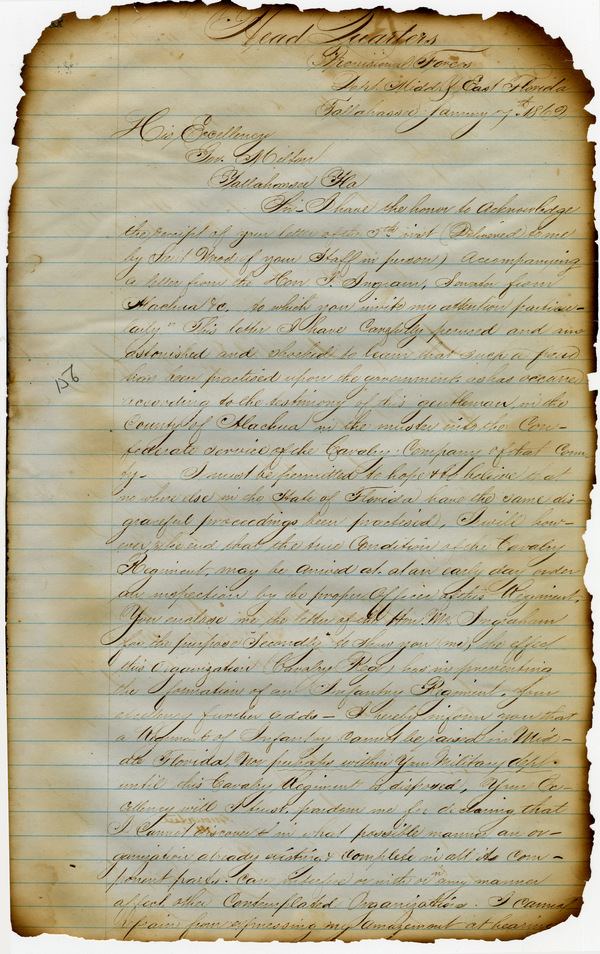 Head Quarters
Provisional Forces
Dept. Midd & East Florida
Tallahassee January 7th 1862
His Excellency
Gov. Milton
Tallahassee Fla
Sir - I have the honor to acknowledge
the receipt of your letter of the 5th inst (Delivered
by of your Staff in person) accompanying
a letter from the Hon J. Ingram, Senator from
Alachua &c. to which you invite my attention particu-
larly" This letter I have carefully perused and am
astonished and shocked to learn that such a fraud
has been practised upon the government as has occurred
according to the testimony of this gentleman, in the
County of Alachua in the muster into the Con-
federate service of the Cavalry Company of that Coun-
ty - I must be permitted to hope & to believe that
no where else in the State of Florida have the same dis-
graceful proceedings been practised, I will how-
ever to the end that the true Condition of the Cavalry
Regiment, may be arrived at, at an early day order
an inspection by the proper Officer of this Regiment.
You enclose me the letter of the Hon. Mr. Ingraham
for the purpose Secondly "to show you me, the effect
this Organization (Cavalry Regt) has in preventing
the formation of an Infantry Regiment, Your
excellency further adds - I hereby inform you that
a Regiment of Infantry cannot be raised in Mid-
dle Florida, Nor perhaps within Your Military dept.
until this Cavalry Regiment is disposed, Your Ex-
cellency will I trust, pardon me for declaring that
I cannot discover in what possible manner an or-
ganization already existing & complete in all its com-
ponent parts, can interfere with or in any manner
affect other Contemplated Organizations. I cannot
refrain from expressing my amazement at hearing
156